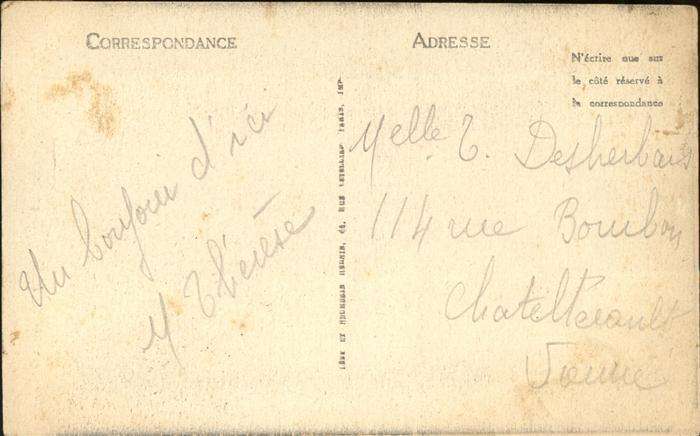 CORRESPONDANCE
ADRESSE
N'écrire que sur
le côté réservé à
la correspondance
Un bonjour d'ici
M. Thérèse
Melle T.
114 rue Bourbon
Chatellerault
Vienne